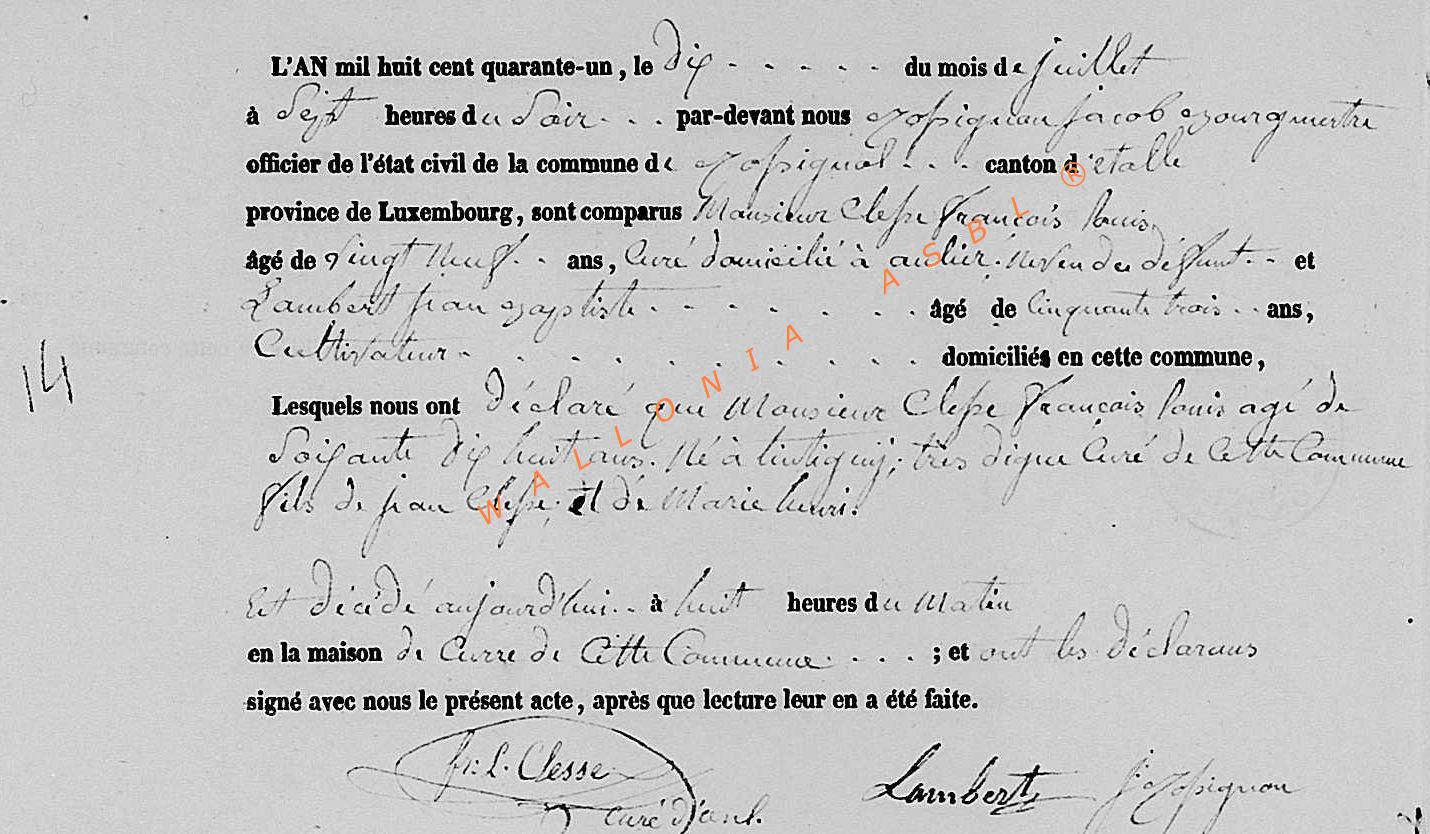 L'AN mil huit cent quarante-un, le dix - - - - - du mois de juillet
à Sept heures du Soir - - - par-devant nous jacob Bourgmertre
officier de l'état civil de la commune de - - - canton d'etalle
province de Luxembourg, sont comparus Monsieur Clesse François Louis
âgé de vingt Neuf - - ans, Curé domicilié à anlier. Neveu du défunt - - et
Lambert jean Baptiste - - - - - - - âgé de Cinquante trois - - ans,
Cultivateur - - - - - - - - - - domiciliés en cette commune,
14
Lesquels nous ont déclaré que Monsieur Clesse François Louis agé de
Soixante dix huit ans. Né à tintigny; très digne Curé de Cette Commune
fils de jean Clesse et de Marie henri.
Est décédé aujourd'hui - - à huit heures du Matin
en la maison de Curre de Cette Commune - - - ; et ont les déclarans
signé avec nous le présent acte, après que lecture leur en a été faite.
fr: L. Clesse
Lambert
curé d'anl.
WALLONIA ASBL ®